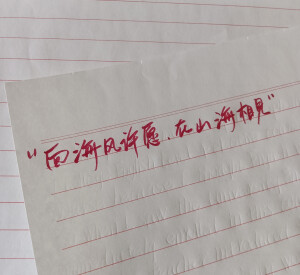 “向海风许愿.在山海相見”